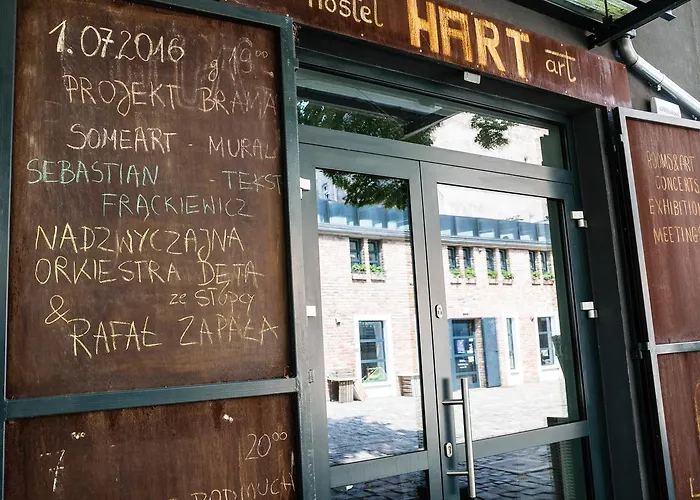 hostel HART art
1.07.2016 g 19:00
PROJEKT BRAMA
SOMEART - MURAL
SEBASTIAN - TEKST
FRĄCKIEWICZ
NADZWYCZAJNA
ORKIESTRA DĘTA
ze Słupcy
& RAFAŁ ZAPAŁA
20:00
ROOMS&ART
CONCERT
EXHIBITION
MEETINGS